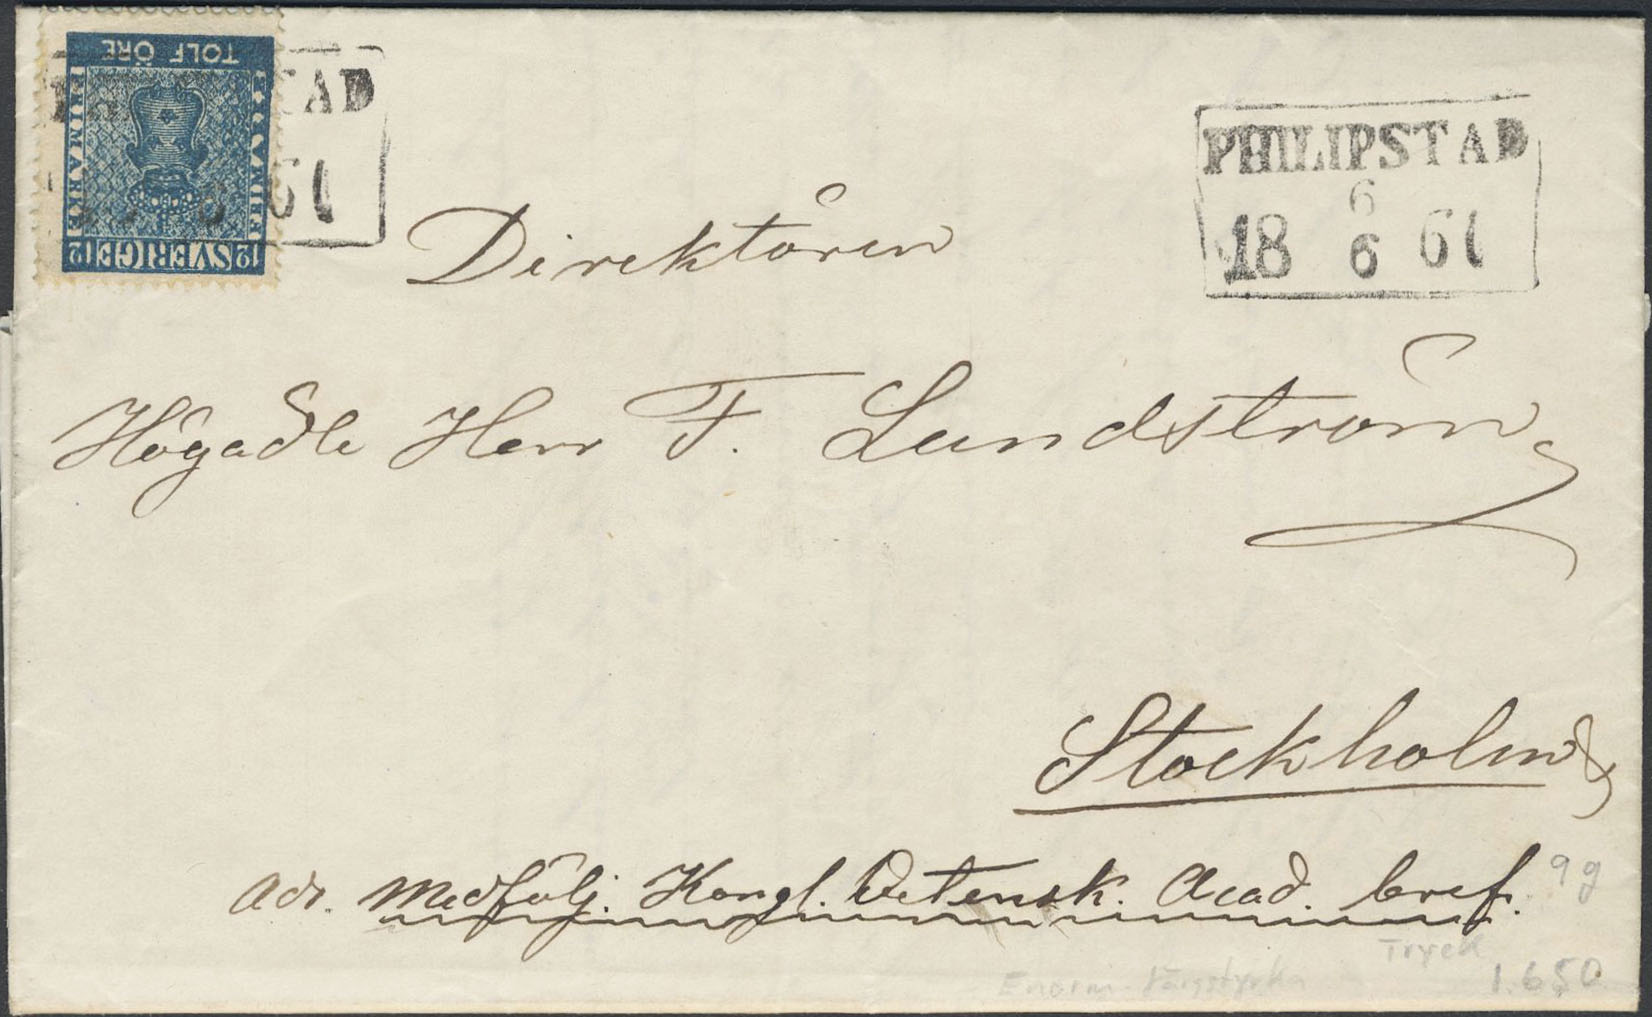 TOLF ÖRE
FRIMÄRKE
SVERIGE
12 12
PHILIPSTAD
6
18 6 61
PHILIPSTAD
6 61
Direktören
Högädle Herr F. Lundström
Stockholm
Adr. Medfölj. Kongl. Vetensk. Acad. bref.
9g
Tryck
Enorm färgstyrka
1.650